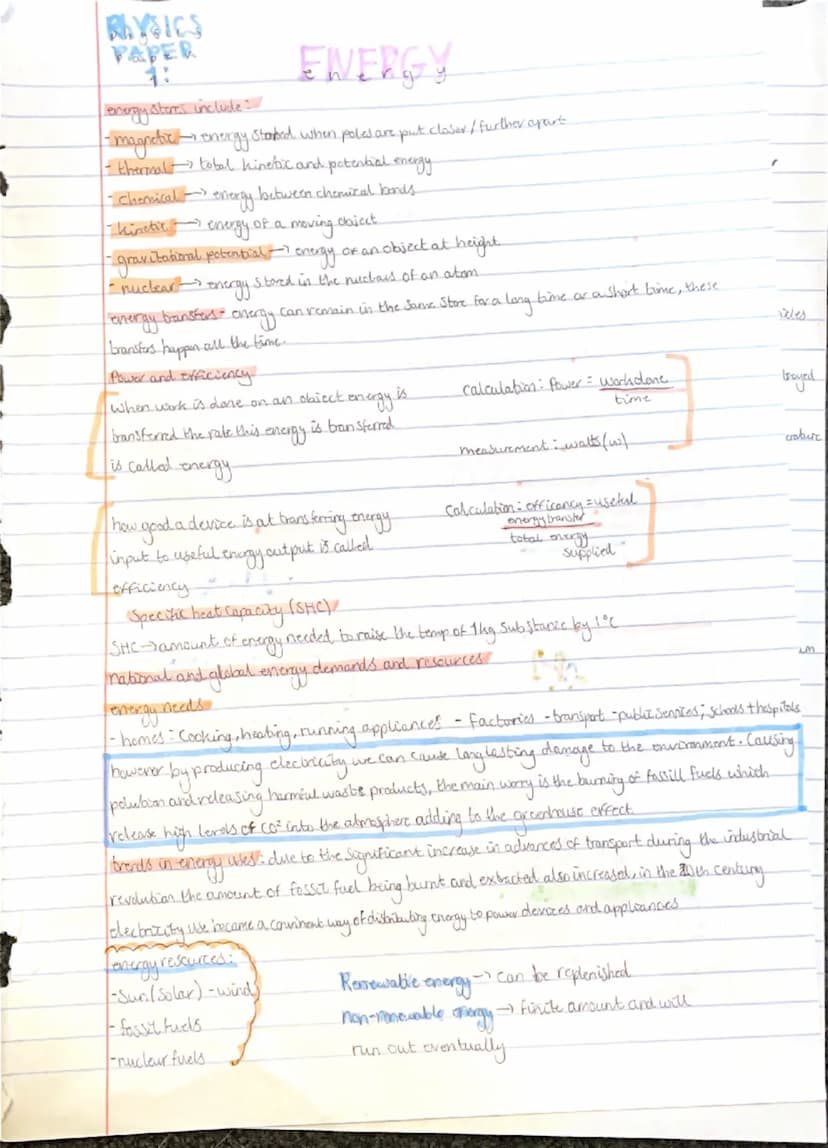 PHYSICS
physics
PAPER
paper
1:
ENERGY
energy
energy stores include:
-magnetic → energy stored when poles are put closer/further apart
-thermal → total kinetic and potential energy
-chemical → energy between chemical bonds
-kinetic → energy of a moving object
-gravitational potential → energy of an object at height
-nuclear → energy stored in the nucleus of an atom
energy transfers- energy can remain in the same store for a long time or a short time, these
transfers happen all the time.
Power and efficiency
when work is done on an object energy is
transferred the rate this energy is transferred
is called energy
calculation: Power = work done
time
measurement: watts(w)
how good a device is at transferring energy
input to useful energy output is called
efficiency
calculation: efficancy = useful
energy transfer
total energy
supplied
Specific heat capacity (SHC)
SHC → amount of energy needed to raise the temp of 1kg substance by 1°C
national and global energy demands and resources
energy needs
- homes: cooking, heating, running appliances - factories -transport -public services; schools + hospitals
however by producing electricity we can cause long lasting damage to the environment. Causing
polution and releasing harmful waste products, the main worry is the burning of fossill fuels which
release high levels of CO² into the atmosphere adding to the greenhouse effect.
trends in energy uses: due to the significant increase in advances of transport during the industrial
revolution the amount of fossil fuel being burnt and extracted also increased, in the 20th century
electricity use became a convinent way of distributing energy to power devices and appliances
energy resources:
-Sun(solar) -wind
-fossil fuels
-nuclear fuels
Renewable energy → can be replenished
non-renewable energy → finite amount and will
run out eventually